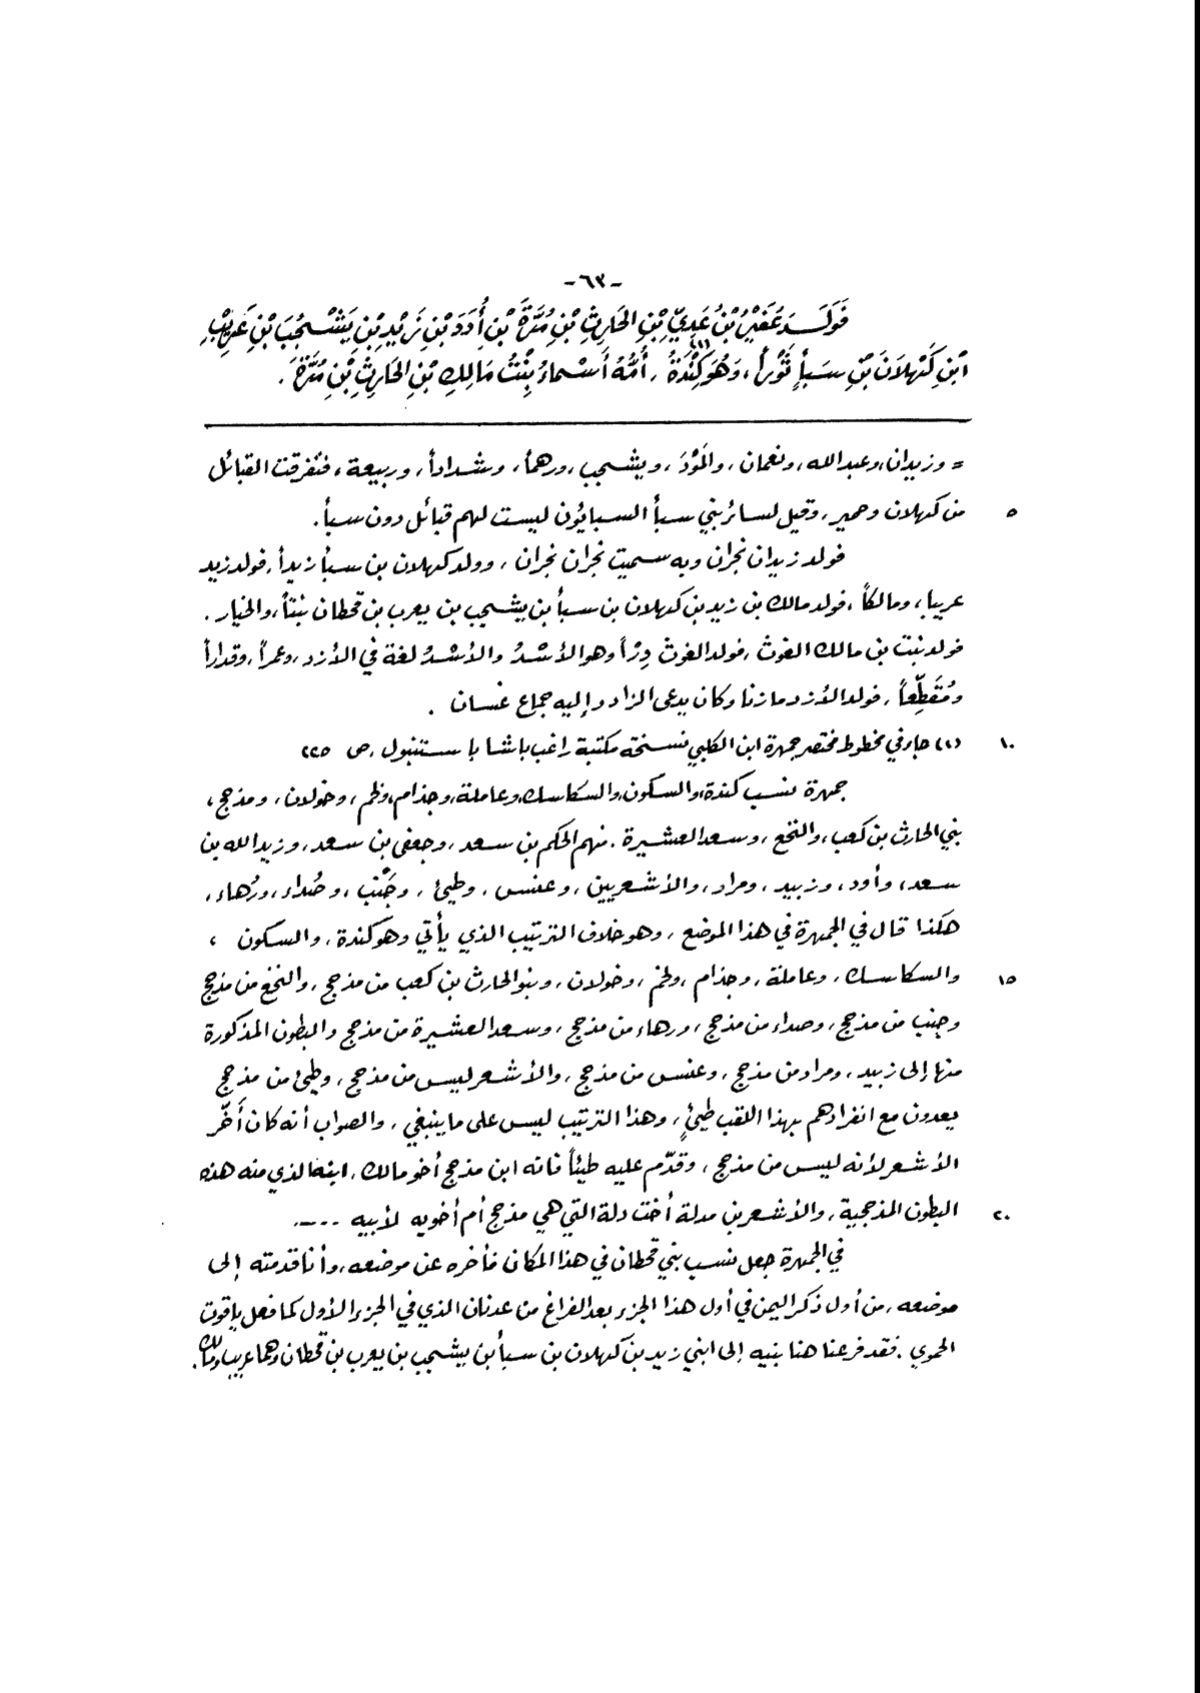 -٦٣-
فَوَلَـدَ عُفَيْرُ بْنُ عَدِيِّ بْنِ الحَارِثِ بْنِ مُرَّةَ بْنِ أُدَدَ بْنِ زَيْدِ بْنِ يَشْـجُبَ بْنِ عَرِيْبِ
ابْنِ كَهْلَانَ بْنِ سَبَأٍ ثَوْراً، وَهُوَ كِنْدَةُ (١)، أُمُّهُ أَسْماءُ بِنْتُ مَالِكِ بْنِ الحَارِثِ بْنِ مُرَّةَ.
= وزيدان، وعبدالله، ونعمان، والمَوْدَ، ويشـجب، ورهماً، وشداداً، وربيعة، فتفرقت القبائل
٥ من كهلان وحمير، وقيل لسائر بني سبأ السبايُون ليست لهم قبائل دون سبأ.
فولد زيدان نجران وبه سميت نجران نجران، وولد كهلان بن سبأ زيداً، فولد زيد
عريبا، ومالكاً، فولد مالك بن زيد بن كهلان بن سبأ بن يشجب بن يعرب بن قحطان نبتاً، والخيار.
فولد نبت بن مالك الغوث، فولد الغوث دِرْأً وهو الأسْدُ والأسْدُ لغة في الأزد، وعمراً، وقداراً
ومُقَطِّعاً، فولد الأزد مازنا وكان يدعى الزاد وإليه جماع غسان.
١٠ (١) جاء في مخطوط مختصر جمهرة ابن الكلبي نسخة مكتبة راغب باشا باستنبول، ص ٢٢٥
جمهرة نسب كندة، والسكون والسكاسك، وعاملة، وجذام، ولخم، وخولان، ومذحج،
بني الحارث بن كعب، والنخع، وسعد العشيرة، منهم الحكم بن سعد، وجعفى بن سعد، وزيد الله بن
سعد، وأود، وزبيد، ومراد، والأشعريين، وعنس، وطيئ، وجَنْب، وصُداء، ورُهاء،
هكذا قال في الجمهرة في هذا الموضع، وهو خلاف الترتيب الذي يأتي وهو كندة، والسكون،
١٥ والسكاسك، وعاملة، وجذام، ولخم، وخولان، وبنو الحارث بن كعب من مذحج، والنخع من مذحج
وجنب من مذحج، وصداء من مذحج، ورهاء من مذحج، وسعد العشيرة من مذحج والبطون المذكورة
منها إلى زبيد، ومراد من مذحج، وعنس من مذحج، والأشعر ليس من مذحج، وطيئ من مذحج
يعدون مع انفرادهم بهذا اللقب طيئٍ، وهذا الترتيب ليس على ما ينبغي، والصواب أنه كان أَخّر
الأشعر لأنه ليس من مذحج، وقدّم عليه طيئاً فانه ابن مذحج أخو مالك، ابنها لذي منه هذه
٢٠ البطون المذحجية، والأشعر بن مدلة أخت دلة التي هي مذحج أم أخويه لأبيه ....
في الجمهرة جعل نسب بني قحطان في هذا المكان فأخره عن موضعه، وأنا قدمته إلى
موضعه، من أول ذكر اليمن في أول هذا الجزء بعد الفراغ من عدنان الذي في الجزء الأول كما فعل ياقوت
الحموي. فقد فرعنا هنا بنيه إلى ابني زيد بن كهلان بن سبأ بن يشجب بن يعرب بن قحطان وهما عريب ومالك.